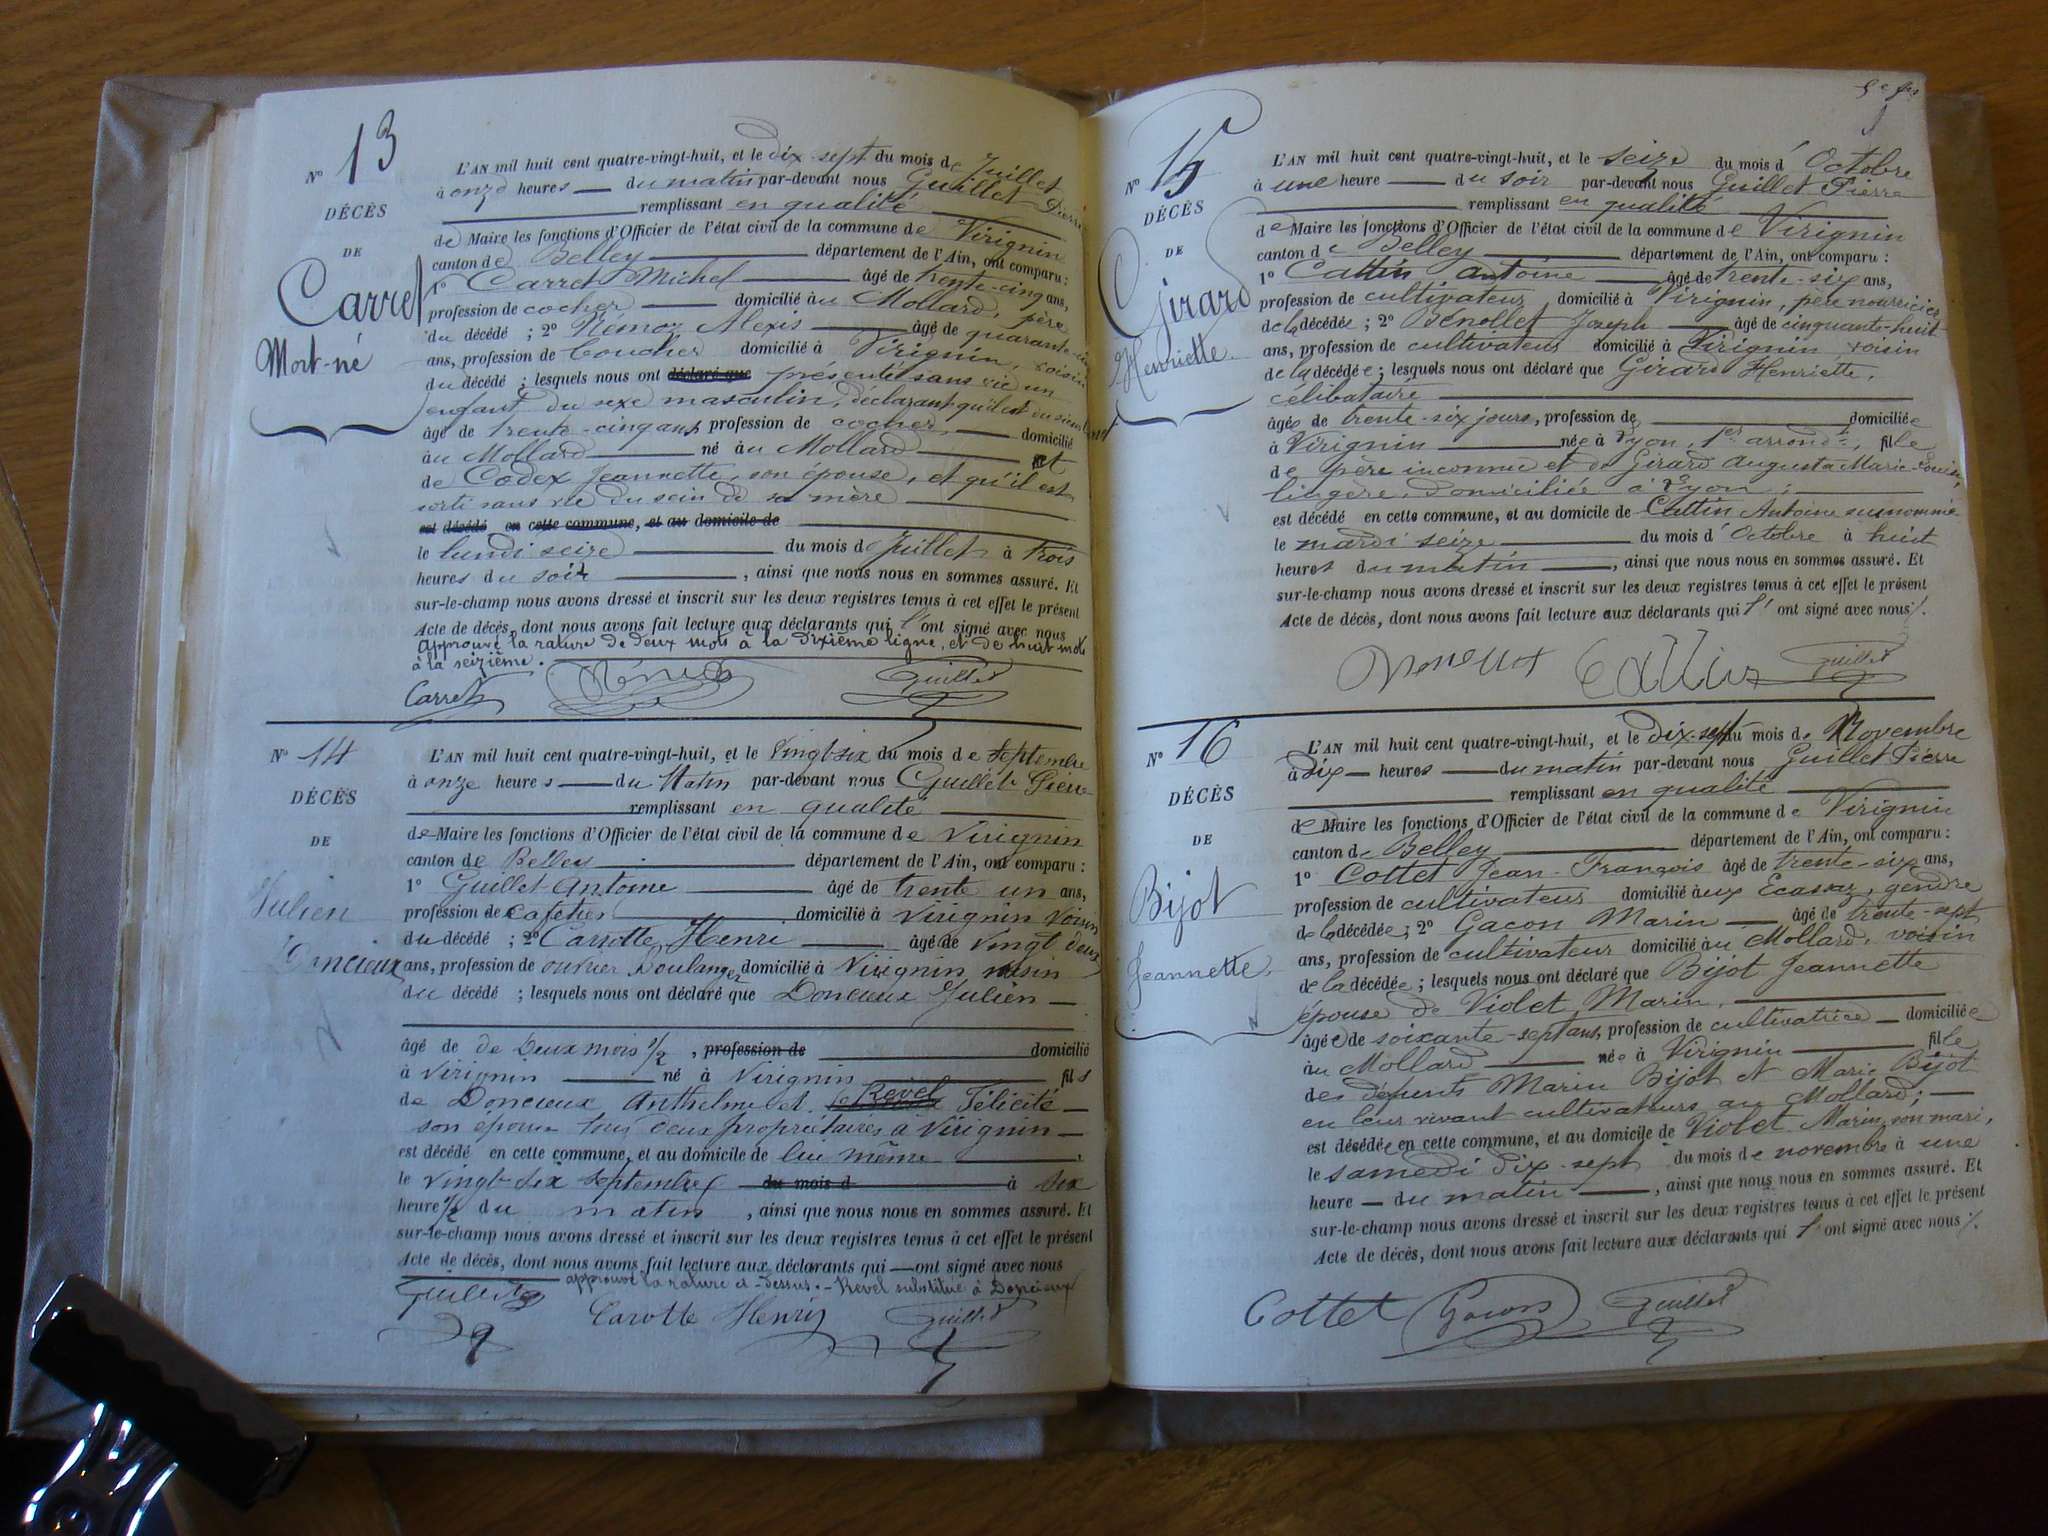 N° 13
DÉCÈS
DE
Carret
Mort-né
L'AN mil huit cent quatre-vingt-huit, et le dix-sept du mois de Juillet
à onze heures du matin par-devant nous Guillet Pierre
remplissant en qualité
de Maire les fonctions d'Officier de l'état civil de la commune de Virignin
canton de Belley département de l'Ain, ont comparu :
1° Carret Michel âgé de trente-cinq ans,
profession de cocher domicilié au Mollard, père
du décédé ; 2° Némoz Alexis âgé de quarante-
ans, profession de domicilié à Virignin, voisin
du décédé ; lesquels nous ont déclaré que présenté sans vie un
enfant du sexe masculin, déclarant qu'il est
âgé de trente-cinq ans, profession de cocher domicilié
au Mollard né au Mollard et
de Codex Jeannette, son épouse, et qu'il est
sorti sans vie du sein de sa mère
est décédé en cette commune, et au domicile de
le lundi seize du mois de Juillet à trois
heures du soir, ainsi que nous nous en sommes assuré. Et
sur-le-champ nous avons dressé et inscrit sur les deux registres tenus à cet effet le présent
Acte de décès, dont nous avons fait lecture aux déclarants qui l' ont signé avec nous
Approuvé la rature de deux mots à la dixième ligne, et de huit mots
à la seizième.
Carret Guillet
N° 14
DÉCÈS
DE
Julien
Doncieux
L'AN mil huit cent quatre-vingt-huit, et le vingt-six du mois de septembre
à onze heures du Matin par-devant nous Guillet Pierre
remplissant en qualité
de Maire les fonctions d'Officier de l'état civil de la commune de Virignin
canton de Belley département de l'Ain, ont comparu :
1° Guillet Antoine âgé de trente un ans,
profession de cafetier domicilié à Virignin voisin
du décédé ; 2° Carrotte Henri âgé de vingt deux
ans, profession de ouvrier boulanger domicilié à Virignin voisin
du décédé ; lesquels nous ont déclaré que Doncieux Julien
âgé de de Deux mois 1/2, profession de domicilié
à Virignin né à Virignin fils
de Doncieux Anthelme et Revel Félicité
son épouse tous deux propriétaires à Virignin
est décédé en cette commune, et au domicile de lui même
le vingt-six septembre du mois d à six
heure 1/2 du matin, ainsi que nous nous en sommes assuré. Et
sur-le-champ nous avons dressé et inscrit sur les deux registres tenus à cet effet le présent
Acte de décès, dont nous avons fait lecture aux déclarants qui ont signé avec nous
approuvé la rature ci-dessus. - Revel substitué à Doncieux
Guillet Carotte Henry Guillet
N° 15
DÉCÈS
DE
Girard
Henriette
L'AN mil huit cent quatre-vingt-huit, et le seize du mois d' Octobre
à une heure du soir par-devant nous Guillet Pierre
remplissant en qualité
de Maire les fonctions d'Officier de l'état civil de la commune de Virignin
canton de Belley département de l'Ain, ont comparu :
1° Cattin Antoine âgé de trente-six ans,
profession de cultivateur domicilié à Virignin, père nourricier
de la décédée ; 2° Bénollet Joseph âgé de cinquante-huit
ans, profession de cultivateur domicilié à Virignin voisin
de la décédée ; lesquels nous ont déclaré que Girard Henriette,
célibataire
âgée de trente-six jours, profession de domiciliée
à Virignin née à Lyon, 1er arrondt, fille
de père inconnu et de Girard Augusta Marie-Louise,
lingère, domiciliée à Lyon ;
est décédé en cette commune, et au domicile de Cattin Antoine susnommé
le mardi seize du mois d' Octobre à huit
heures du matin, ainsi que nous nous en sommes assuré. Et
sur-le-champ nous avons dressé et inscrit sur les deux registres tenus à cet effet le présent
Acte de décès, dont nous avons fait lecture aux déclarants qui l' ont signé avec nous /.
Cattin Guillet
N° 16
DÉCÈS
DE
Bijot
Jeannette
L'AN mil huit cent quatre-vingt-huit, et le dix-sept du mois de Novembre
à dix heures du matin par-devant nous Guillet Pierre
remplissant en qualité
de Maire les fonctions d'Officier de l'état civil de la commune de Virignin
canton de Belley département de l'Ain, ont comparu :
1° Cottet Jean-François âgé de trente-six ans,
profession de cultivateur domicilié aux Ecassaz, gendre
de la décédée ; 2° Gacon Marin âgé de trente-sept
ans, profession de cultivateur domicilié au Mollard, voisin
de la décédée ; lesquels nous ont déclaré que Bijot Jeannette
épouse de Violet Marin,
âgée de soixante-sept ans, profession de cultivatrice domiciliée
au Mollard née à Virignin fille
des défunts Marin Bijot et Marie Bijot
en leur vivant cultivateurs au Mollard ;
est décédée en cette commune, et au domicile de Violet Marin, son mari,
le samedi dix-sept du mois de novembre à une
heure du matin, ainsi que nous nous en sommes assuré. Et
sur-le-champ nous avons dressé et inscrit sur les deux registres tenus à cet effet le présent
Acte de décès, dont nous avons fait lecture aux déclarants qui l' ont signé avec nous /.
Cottet Gacon Guillet